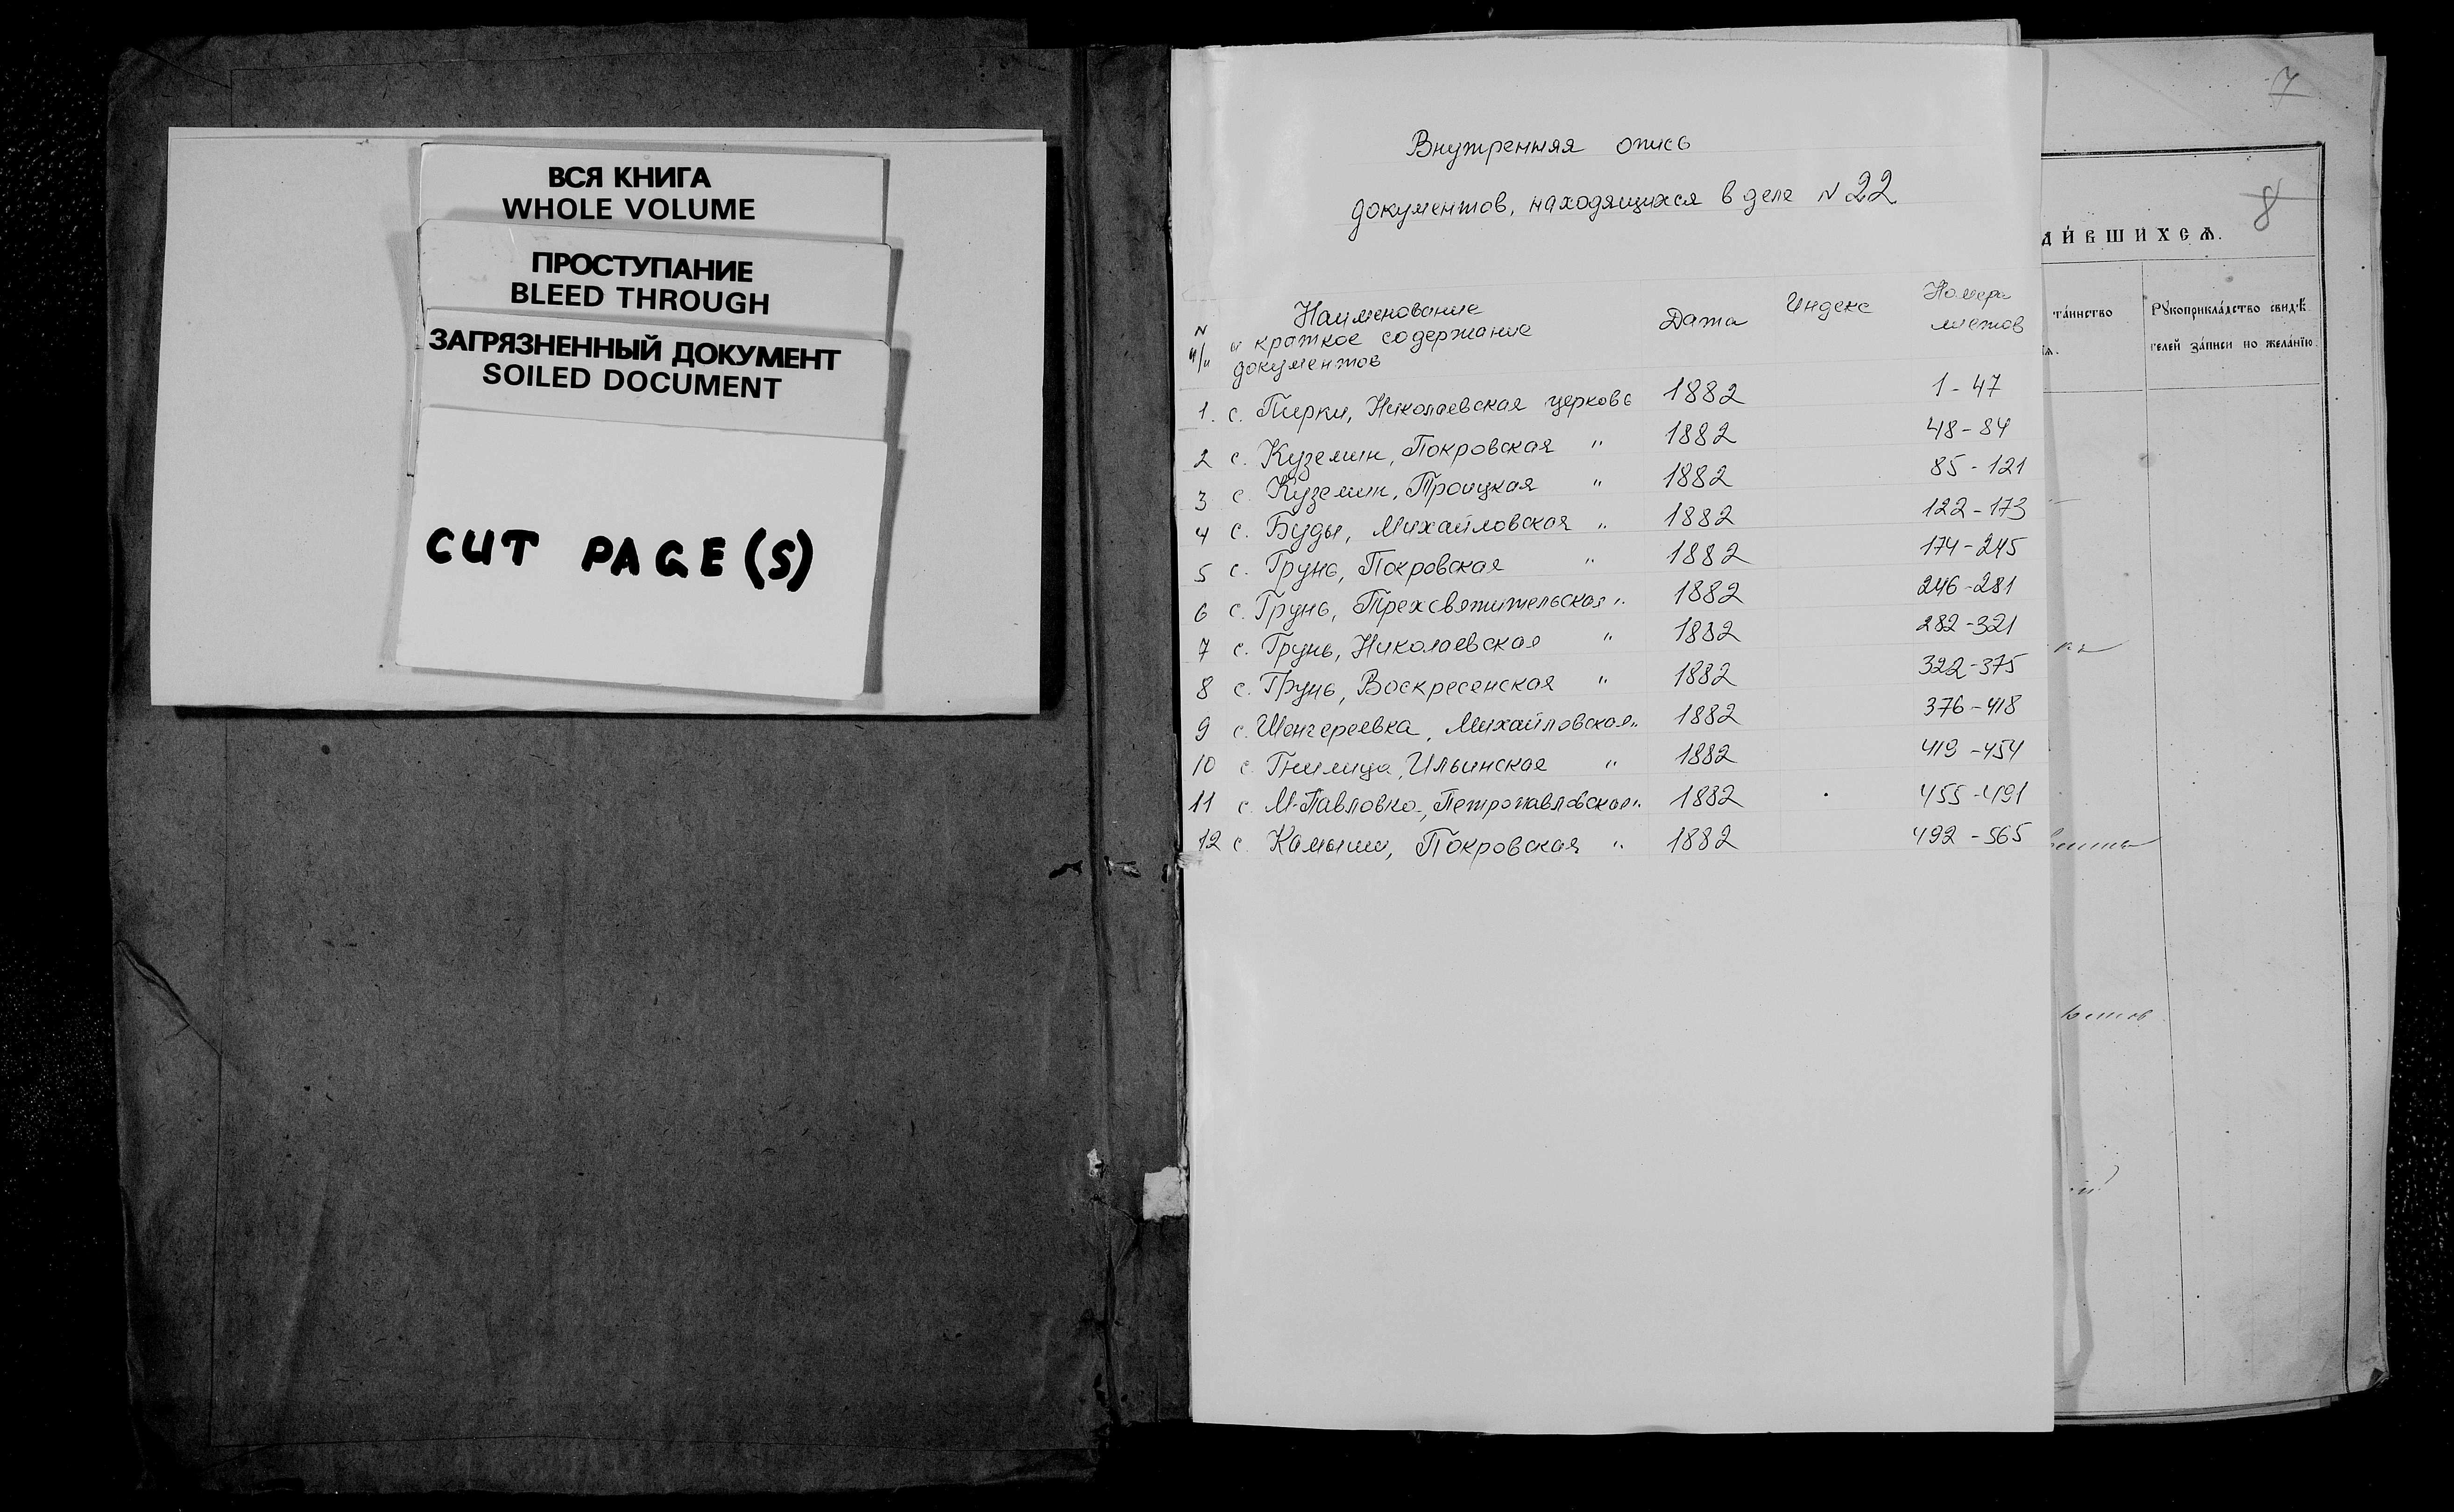 ВСЯ КНИГА
WHOLE VOLUME
ПРОСТУПАНИЕ
BLEED THROUGH
ЗАГРЯЗНЕННЫЙ ДОКУМЕНТ
SOILED DOCUMENT
CUT PAGE(S)
Внутренняя опись
документов, находящихся в деле N 22
N п/п Наименование и краткое содержание документов Дата Индекс Номера листов
1. с. Пирки, Николаевская церковь 1882 1-47
2 с. Куземин, Покровская " 1882 48-84
3 с. Куземин, Троицкая " 1882 85-121
4 с. Буды, Михайловская " 1882 122-173
5 с. Грунь, Покровская " 1882 174-245
6 с. Грунь, Трехсвятительская " 1882 246-281
7 с. Грунь, Николаевская " 1882 282-321
8 с. Грунь, Воскресенская " 1882 322-375
9 с. Шенгереевка, Михайловская " 1882 376-418
10 с. Гнилица, Ильинская " 1882 419-454
11 с. М-Павловка, Петропавловская " 1882 455-491
12 с. Камыши, Покровская " 1882 492-565
7
8
ди́вшихсѧ.
та́инство
Рꙋкоприкла́дство свидѣ-
телей за́писи по жела́нїю.